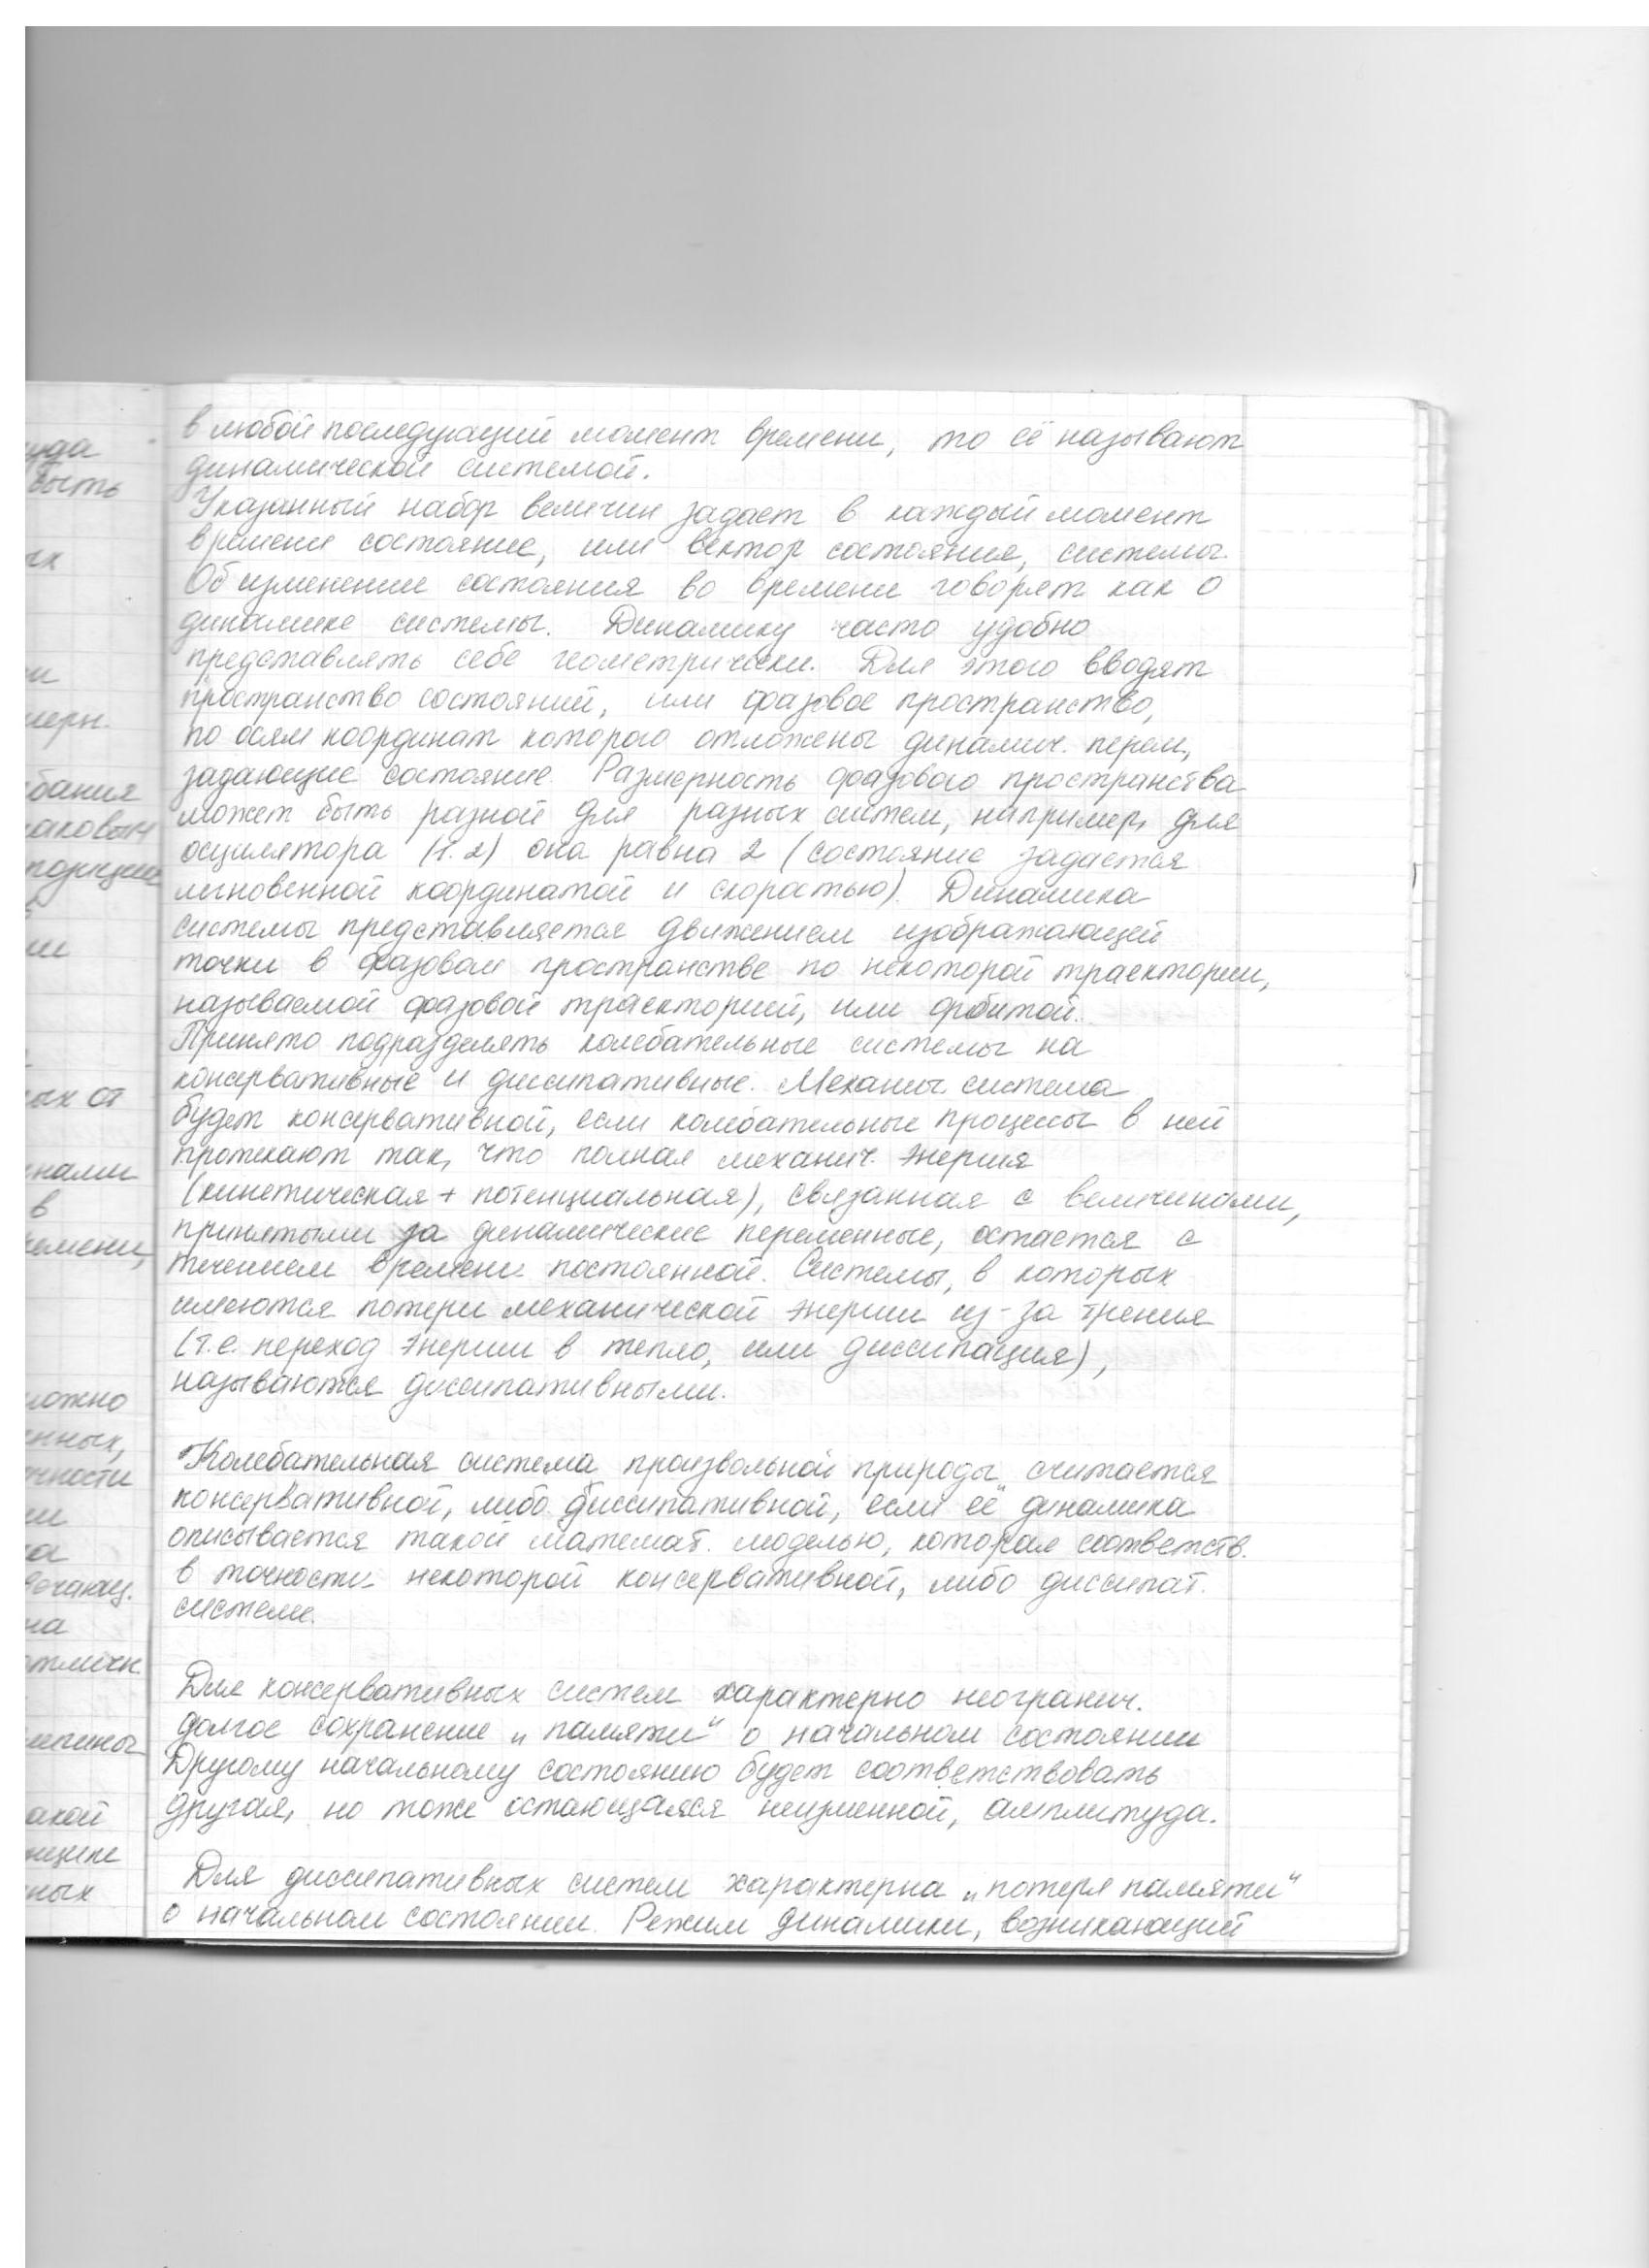 в любой последующий момент времени, то её называют
динамической системой.
Указанный набор величин задает в каждый момент
времени состояние, или вектор состояния, системы.
Об изменении состояния во времени говорят как о
динамике системы. Динамику часто удобно
представлять себе геометрически. Для этого вводят
пространство состояний, или фазовое пространство,
по осям координат которого отложены динамич. перем.,
задающие состояние. Размерность фазового пространства
может быть разной для разных систем, например, для
осцилятора (1.2) она равна 2 (состояние задается
мгновенной координатой и скоростью). Динамика
системы представляется движением изображающей
точки в фазовом пространстве по некоторой траектории,
называемой фазовой траекторией, или орбитой.
Принято подразделять колебательные системы на
консервативные и диссипативные. Механич. система
будет консервативной, если колебательные процессы в ней
протекают так, что полная механич. энергия
(кинетическая + потенциальная), связанная с величинами,
принятыми за динамические переменные, остается с
течением времени постоянной. Системы, в которых
имеются потери механической энергии из-за трения
(т.е. переход энергии в тепло, или диссипация),
называются диссипативными.
Колебательная система произвольной природы считается
консервативной, либо диссипативной, если её динамика
описывается такой математ. моделью, которая соответств.
в точности некоторой консервативной, либо диссипат.
системе.
Для консервативных систем характерно неогранич.
долгое сохранение „памяти“ о начальном состоянии
Другому начальному состоянию будет соответствовать
другая, но тоже остающаяся неизменной, амплитуда.
Для диссипативных систем характерна „потеря памяти“
о начальном состоянии. Режим динамики, возникающий